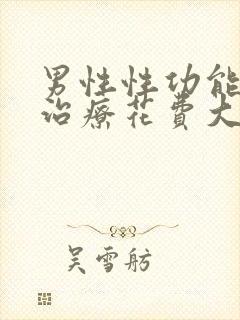 男性性功能
治療花費大
吴雪舫